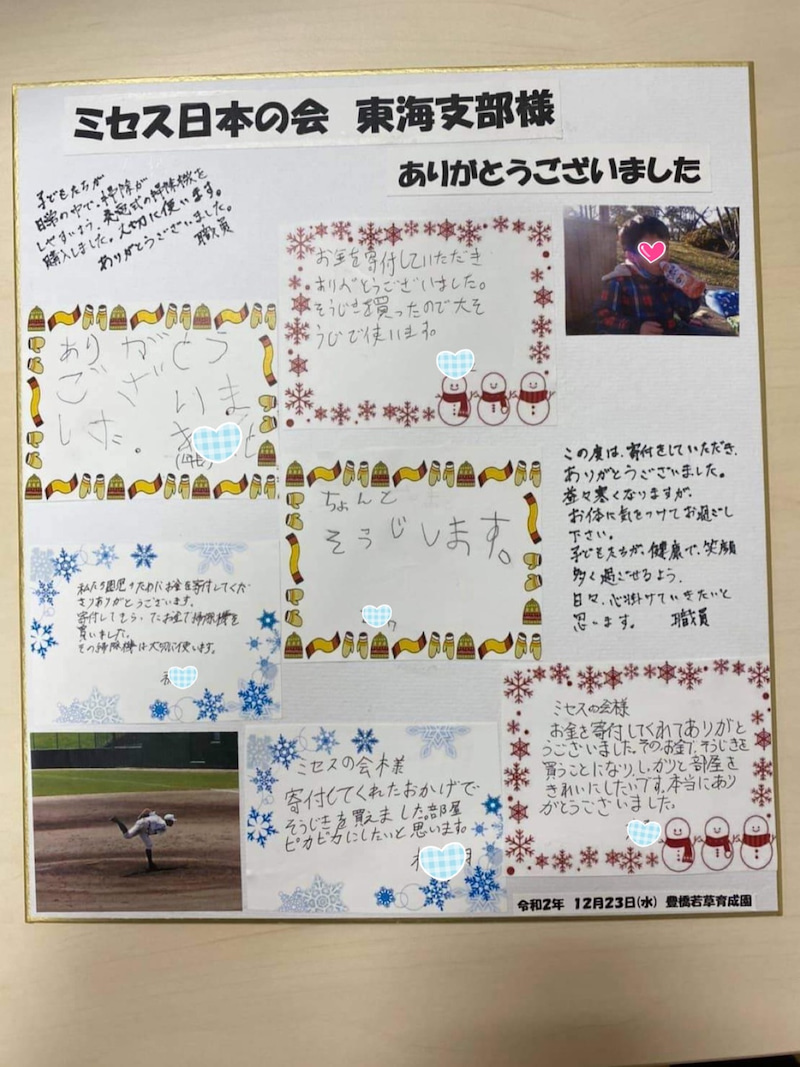 ミセス日本の会 東海支部様
ありがとうございました
子どもたちが
日常の中で、掃除が
しやすいよう、充電式の掃除機を
購入しました。大切に使います。
ありがとうございました。
職員
お金を寄付していただき
ありがとうございました。
そうじきを買ったので大そ
うじで使います。
ありがとう
ございま
した。
ちょんと
そうじします。
この度は、寄付をしていただき、
ありがとうございました。
益々寒くなりますが、
お体に気をつけてお過ごし
下さい。
子どもたちが、健康で、笑顔
多く過ごせるよう、
日々、心掛けていきたいと
思います。 職員
私たち園児のためにお金を寄付してくだ
さりありがとうございます。
寄付してもらったお金で掃除機を
買いました。
その掃除機は大切に使います。
ミセスの会様
お金を寄付してくれてありがと
うございました。そのお金で、そうじきを
買うことになり、しっかりと部屋を
きれいにしたいです。本当にあり
がとうございました。
ミセスの会様
寄付してくれたおかげで、
そうじきを買えました。部屋
ピカピカにしたいと思います。
令和2年 12月23日(水) 豊橋若草育成園